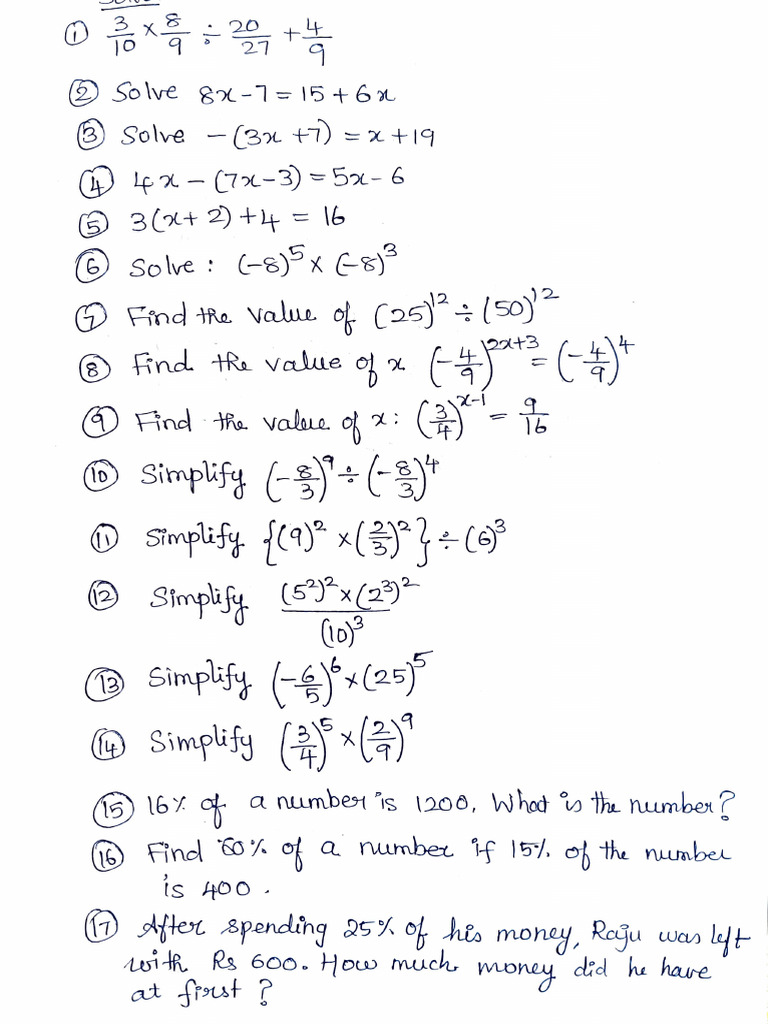 ① 3/10 × 8/9 ÷ 20/27 + 4/9
② Solve 8x-7 = 15 + 6x
③ Solve -(3x +7) = x +19
④ 4x - (7x-3) = 5x - 6
⑤ 3(x+2) +4 = 16
⑥ Solve : (-8)^5 × (-8)^3
⑦ Find the value of (25)^12 ÷ (50)^12
⑧ Find the value of x (-4/9)^(2x+3) = (-4/9)^4
⑨ Find the value of x: (3/4)^(x-1) = 9/16
⑩ Simplify (-8/3)^9 ÷ (-8/3)^4
⑪ Simplify {(9)^2 × (2/3)^2} ÷ (6)^3
⑫ Simplify (5^2)^2 × (2^3)^2 / (10)^3
⑬ Simplify (-6/5)^6 × (25)^5
⑭ Simplify (3/4)^5 × (2/9)^9
⑮ 16% of a number is 1200. What is the number?
⑯ Find 60% of a number if 15% of the number
is 400.
⑰ After spending 25% of his money, Raju was left
with Rs 600. How much money did he have
at first ?